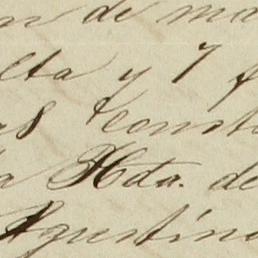 de ma
lta y 7 f
const
a Hda. de
Agustin